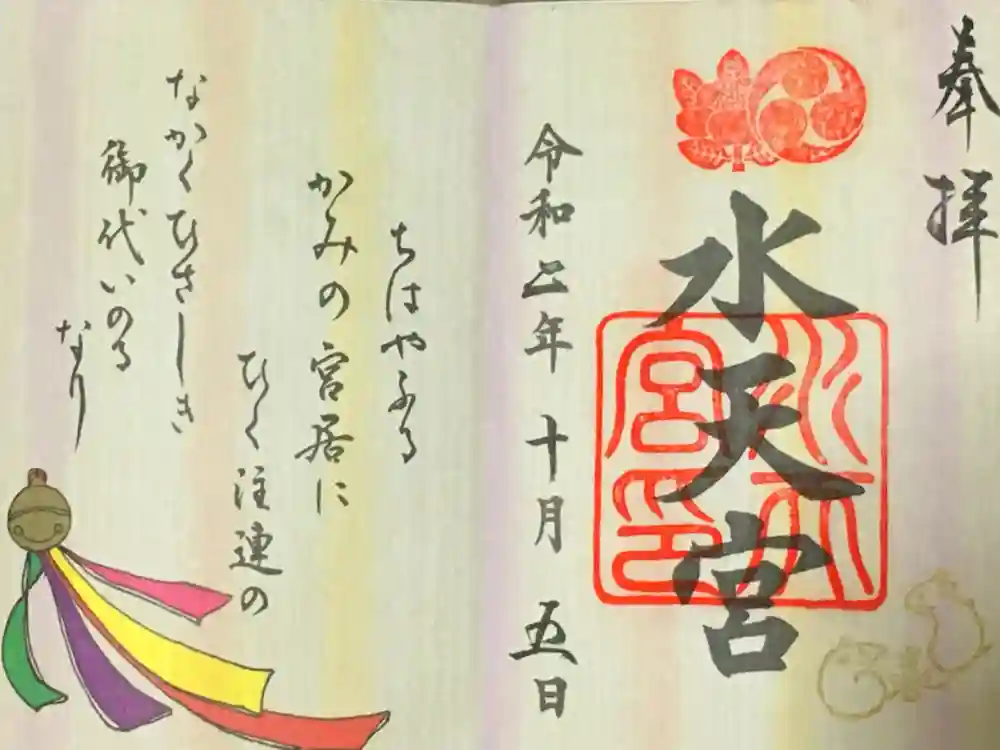 奉拝
水天宮
水天宮印
令和二年十月五日
ちはやふる
かみの宮居に
ひく注連の
なかくひさしき
御代いのる
なり